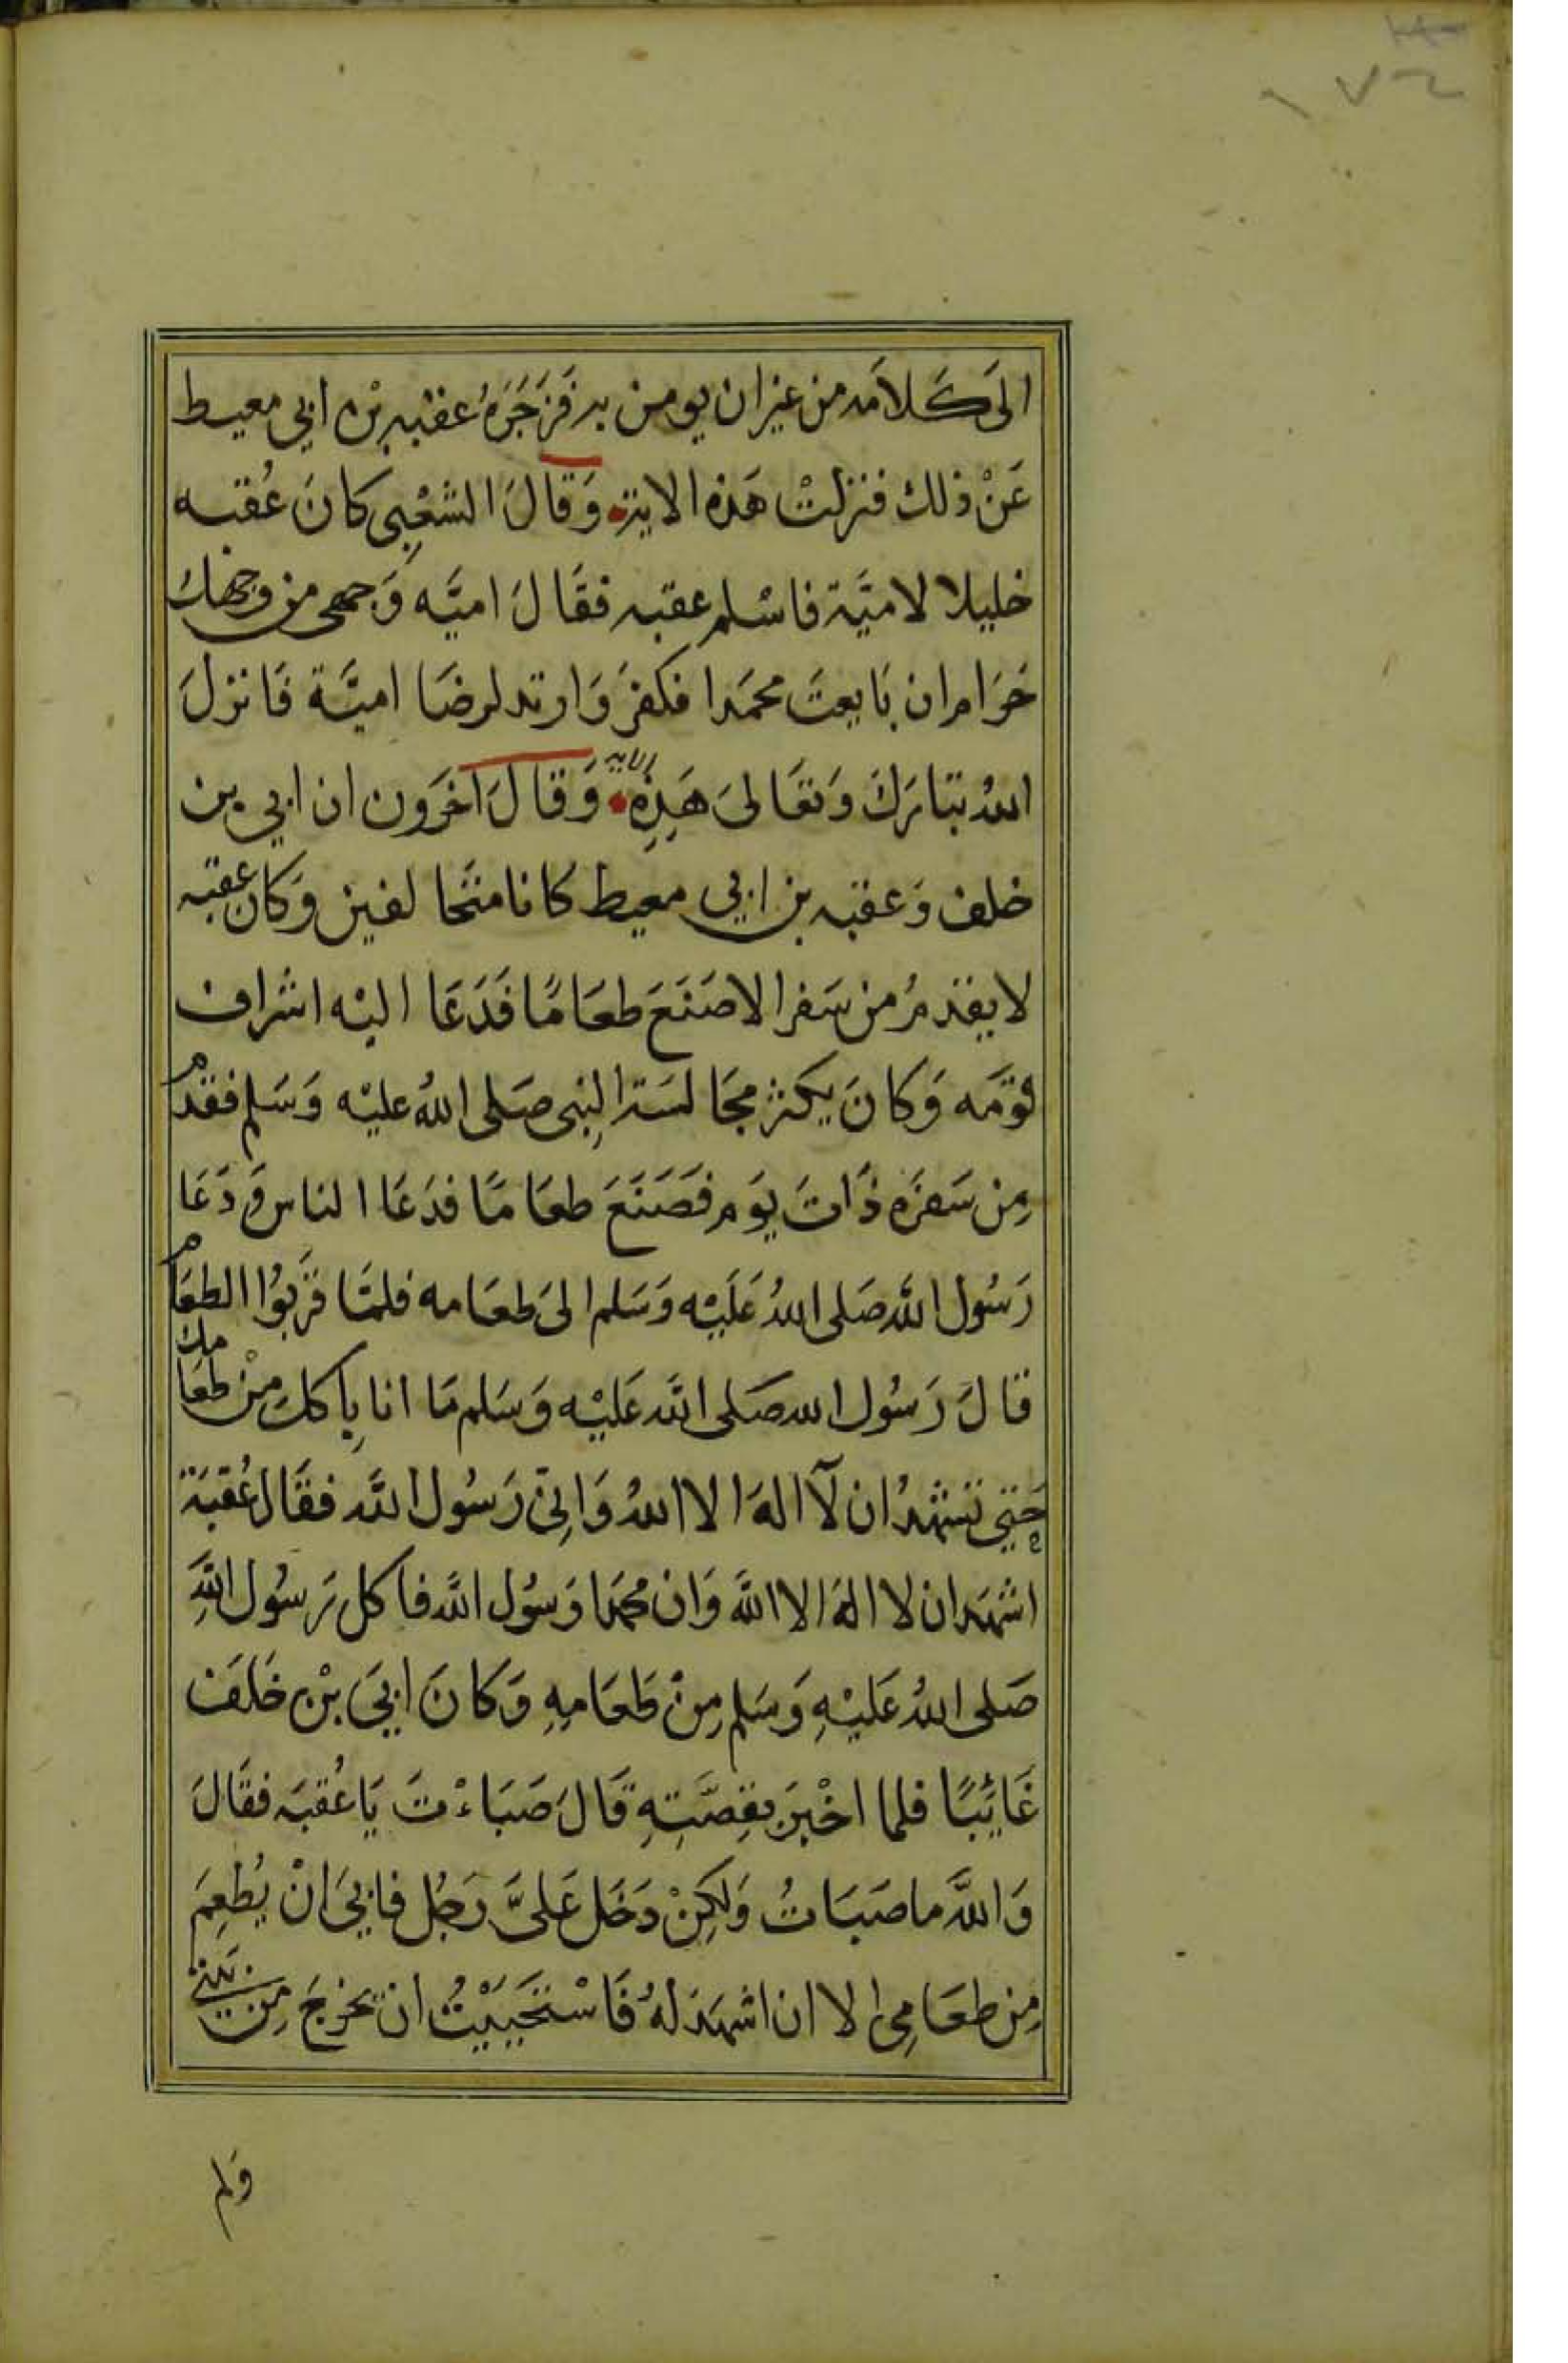 ١٧٤
الَى كَلَامه من غير ان يومن به فَزَجَرَهُ عقبه بْن ابي معيط
عَنْ ذلك فنزلتْ هَذه الاية وَقَالَ الشعْبِى كانَ عُقبه
خليلا لاميَّة فاسْلم عقبه فقَالَ اميَّه وَجهى من وجهك
حَرَامران بَايعتَ محمَدا فكفرَ وَارتد لرضَا اميَّة فَانزلَ
اللهُ تبَارَكَ وَتعَالىَ هَذِهِ الايه وَقَالَ آخَرَون ان ابي بن
خلف وَعقبه بن ابي معيط كانا متحَالفين وَكان عقبه
لا يقدمُ من سَفر الا صَنَعَ طعَامًا فَدَعَا اليْه اشرَاف
قومَه وَكانَ يكثر مجَالسَة النبِى صَلى اللهُ عليْه وَسَلم فقدمَ
مِن سَفرَه ذَاتَ يوَم فصَنَعَ طعَامًا فدَعَا الناس وَدَعَا
رَسُول اللَّه صَلى اللهُ عَليْه وَسَلم الىَ طعَامه فلمَّا قرَّبوُا الطعَام
قالَ رَسُول الله صَلى اللَّه عَليْه وَسَلم مَا انا بِاكل مِنْ طعَامك
حَتِى تشهدُ ان لآ الهَ الا اللهُ وَانِىّ رَسُول اللَّه فقَال عُقبَة
اشهَد ان لا الهَ الا اللَّهَ وَان محمَدا رَسُول اللَّه فاكل رَسُول اللَّهِ
صَلى اللهُ عَليْهِ وَسَلم مِنْ طعَامِهِ وَكانَ ابَي بْن خَلَف
غَائِبًا فلما اخْبرَ بقِصَّتِهِ قَالَ صَبَاءْتَ يَا عُقبَه فقَالَ
وَاللَّه ما صَبَاتُ وَلكِنْ دَخَل عَلىَّ رَجُل فابيَ انْ يُطعِمَ
مِن طعَامِى الا ان اشهَد لهُ فَاسْتَحيَيْتُ ان يخرجَ مِن بَيتى
وَلم